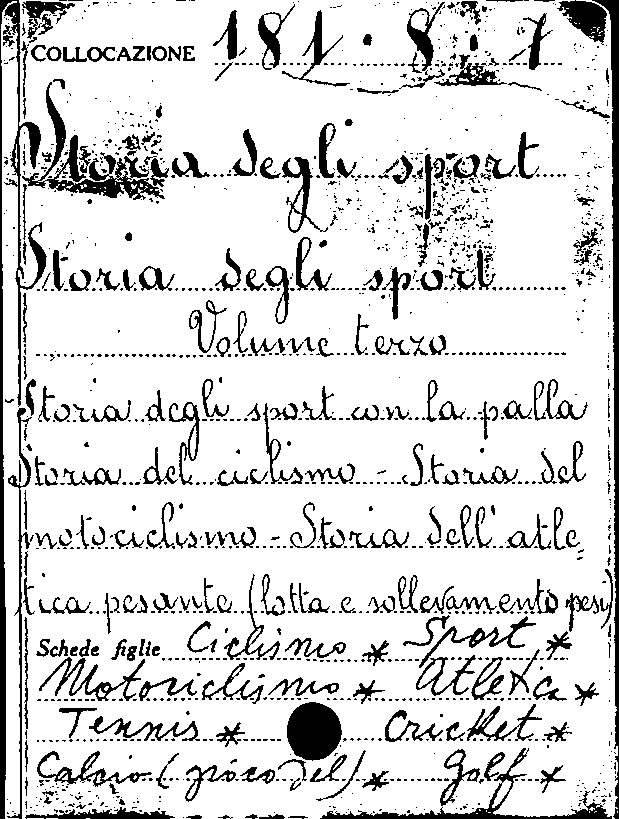 COLLOCAZIONE 181 · 8 · 7
Storia degli sport
Storia degli sport
Volume terzo
Storia degli sport con la palla
Storia del ciclismo - Storia del
motociclismo - Storia dell'atle=
tica pesante (lotta e sollevamento pesi)
Schede figlie Ciclismo * Sport *
Motociclismo * Atletica *
Tennis * Cricket *
Calcio (gioco del) * Golf *